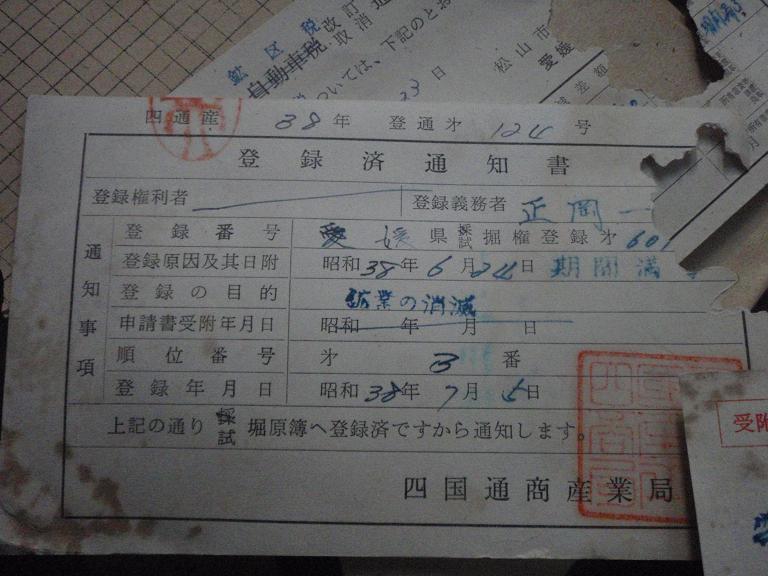 鉱区税
自動車税
改訂
取消
については、下記のとお
23日
松山市
愛媛
四通産 38年 登通才 124 号
登録済通知書
登録権利者
登録義務者 正岡一
通知事項
登録番号 愛媛県 採試掘権登録才 601
登録原因及其日附 昭和38年6月24日 期間満
登録の目的 鉱業の消滅
申請書受附年月日 昭和 年 月 日
順位番号 才 3 番
登録年月日 昭和38年7月5日
上記の通り 採試 堀原簿へ登録済ですから通知します。
四国通商産業局
受附